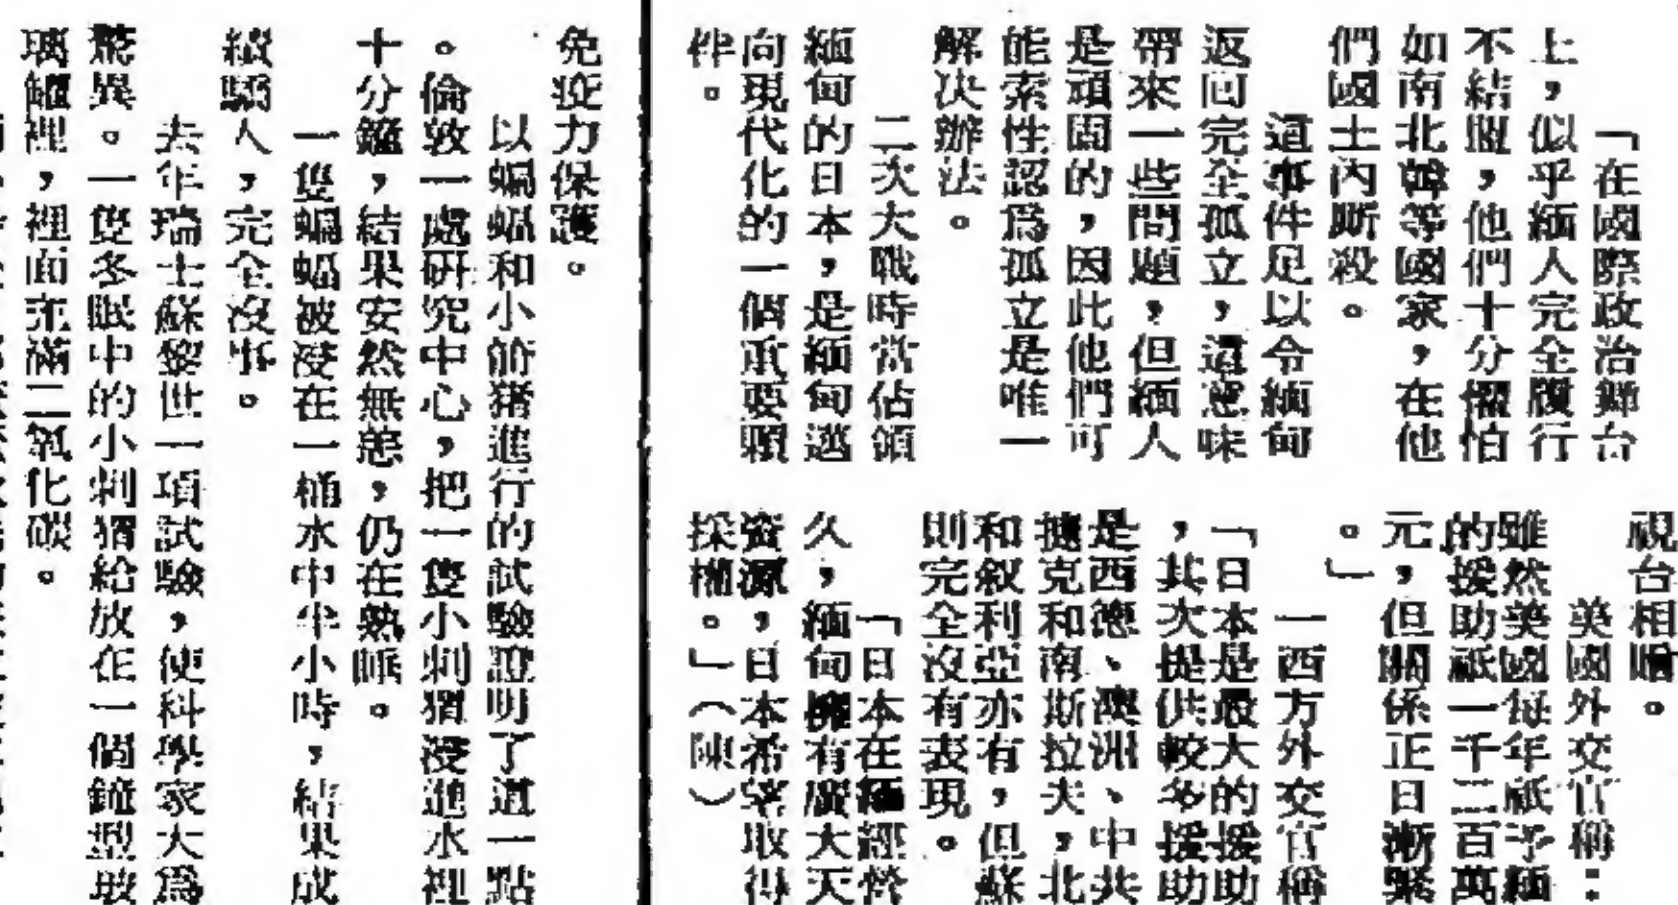 「在國際政治舞台
上，似乎緬人完全履行
不結盟，他們十分懼怕
如南北韓等國家，在他
們國土內厮殺。
這事件足以令緬甸
返回完全孤立，這意味
帶來一些問題，但緬人
是頑固的，因此他們可
能索性認爲孤立是唯一
解决辦法。
二次大戰時當佔領
緬甸的日本，是緬甸邁
向現代化的一個重要夥
伴。
視台相瞻。
美國外交官稱：
雖然美國每年祇予緬
的援助祇一千二百萬
元，但關係正日漸緊
。」
一西方外交官稱
「日本是最大的援助
，其次提供較多援助
是西德、澳洲、中共
捷克和南斯拉夫，北
和叙利亞亦有，但蘇
則完全沒有表現。
「日本在緬經營
久，緬甸擁有廣大天
資源，日本希望取得
採權。」（陳）
免疫力保護。
以蝙蝠和小箭猪進行的試驗證明了這一點
。倫敦一處研究中心，把一隻小刺猬浸進水裡
十分鐘，結果安然無恙，仍在熟睡。
一隻蝙蝠被浸在一桶水中半小時，結果成
績驕人，完全沒事。
去年瑞士蘇黎世一項試驗，使科學家大爲
驚異。一隻冬眠中的小刺猬給放在一個鐘型玻
璃罐裡，裡面充滿二氧化碳。